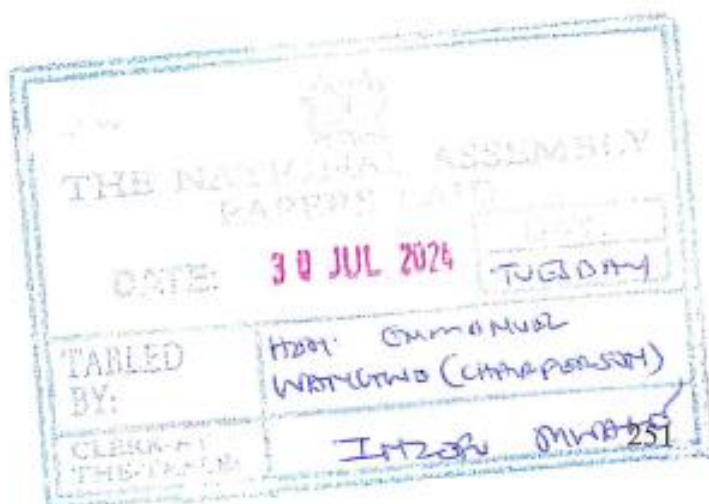 THE NATIONAL ASSEMBLY
PAPERS LAID
DATE: 30 JUL 2024
DAY:
TUESDAY
TABLED BY:
HON. EMMANUEL
(CHAIRPERSON)
CLERK-AT THE-TABLE:
251